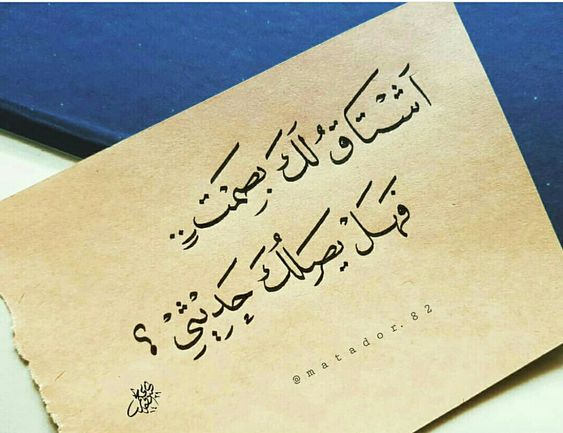 أَشْتَاقُ لَكَ بِصَمْتٍ..
فَهَلْ يَصِلُكَ حَدِيْثِيْ ؟
@matador.82